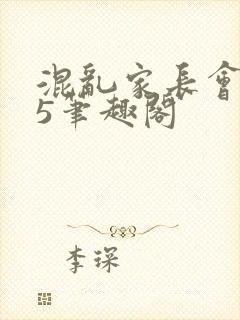 混亂家長會
5筆趣閣
李琛